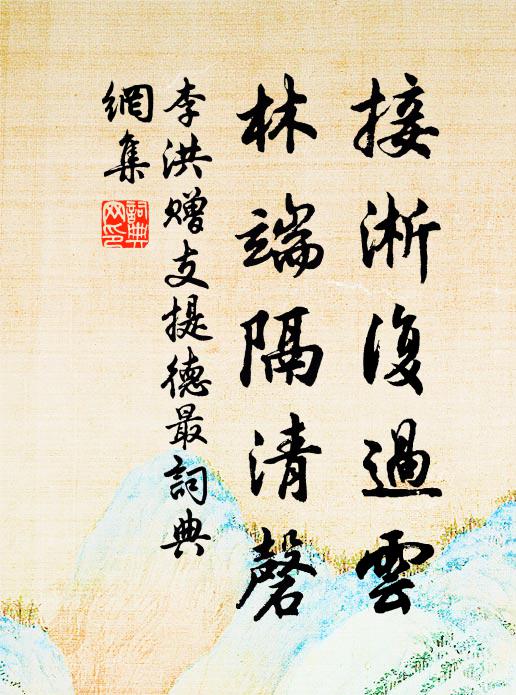 接淅復過雲
林端隔清磬
李洪贈支提德最詞典
網集
詞典網印